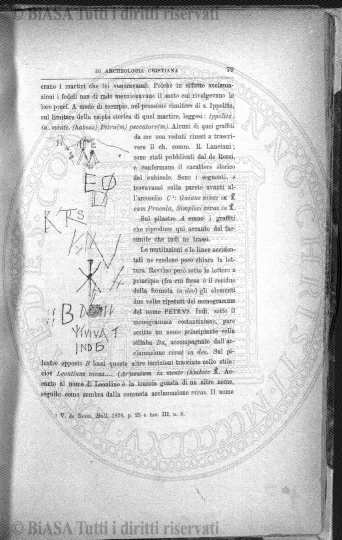 © BiASA Tutti i diritti riservati
DI ARCHEOLOGIA CRISTIANA 79
erano i martiri che ivi veneravansi. Poichè in siffatte acclama-
zioni i fedeli non di rado menzionavano il santo cui rivolgevano le
loro preci. A modo di esempio, nel prossimo cimitero di s. Ippolito,
sul limitare della cripta storica di quel martire, leggesi: Ippolite
in mente (habeas) Petru(m) peccatore(m). Alcuni di quei graffiti
da me non veduti riuscì a trascri-
vere il ch. comm. R. Lanciani;
sono stati pubblicati dal de Rossi,
e confermano il carattere storico
del cubicolo. Sono i seguenti, e
trovavansi sulla parete avanti al-
l'arcosolio C ¹: Gaiane vivas in
cum Procula, Simplici vivas in
Sul pilastro A erano i graffiti
che riproduco qui accanto dal fac-
simile che indi ne trassi.
Le mutilazioni e le linee acciden-
tali ne rendono poco chiara la let-
tura. Ravviso però sotto le lettere a
principio (fra cui forse è il residuo
della formola in deo) gli elementi
due volte ripetuti del monogramma
del nome PETRVS. Indi sotto il
monogramma costantiniano, pare
scritto un nome principiante colla
sillaba Bu, accompagnato dall'ac-
clamazione vivat in deo. Sul pi-
lastro opposto B lessi queste altre iscrizioni tracciate collo stilo:
cioè Leontium vivas.... (Ar)tenium in mente (h)abete Ac-
canto al nome di Leontino è la traccia guasta di un altro nome,
seguito come sembra dalla consueta acclamazione vivas. Il nome
¹ V. de Rossi, Bull. 18
EO
KRS
B
VIVAT
IN DE
© BiASA Tutti i diritti riservati